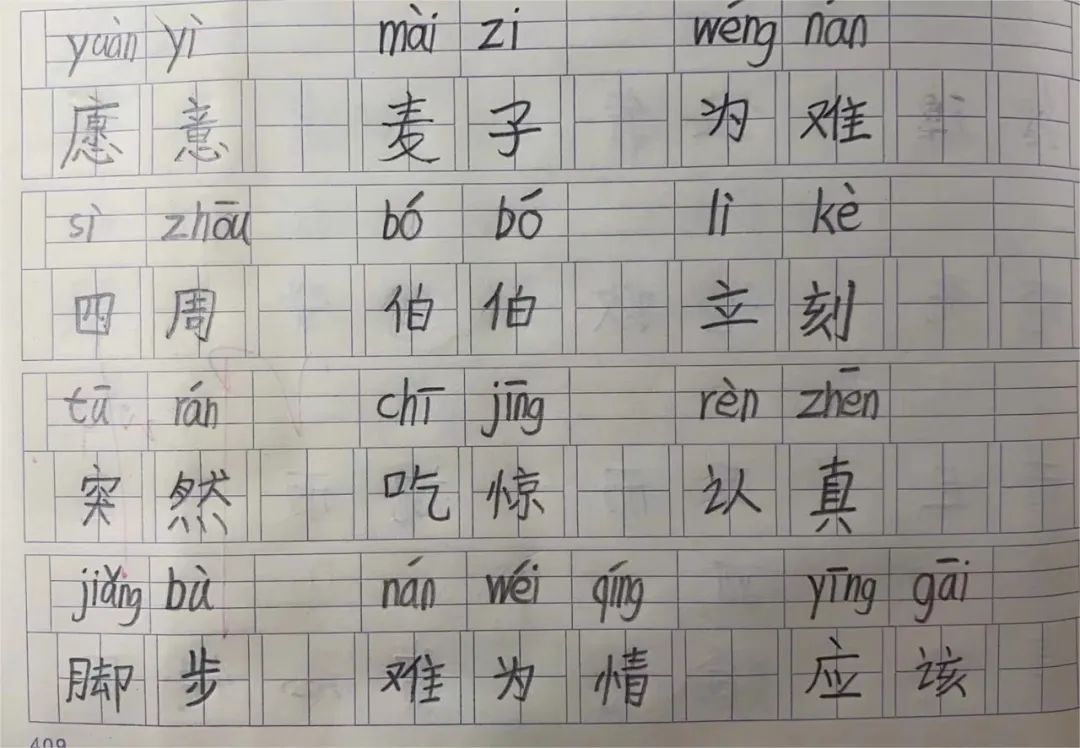 yuàn yì mài zi wéng nán
愿意 麦子 为难
sì zhōu bó bó lì kè
四周 伯伯 立刻
tū rán chī jīng rèn zhēn
突然 吃惊 认真
jiǎng bù nán wéi qíng yīng gāi
脚步 难为情 应该
409